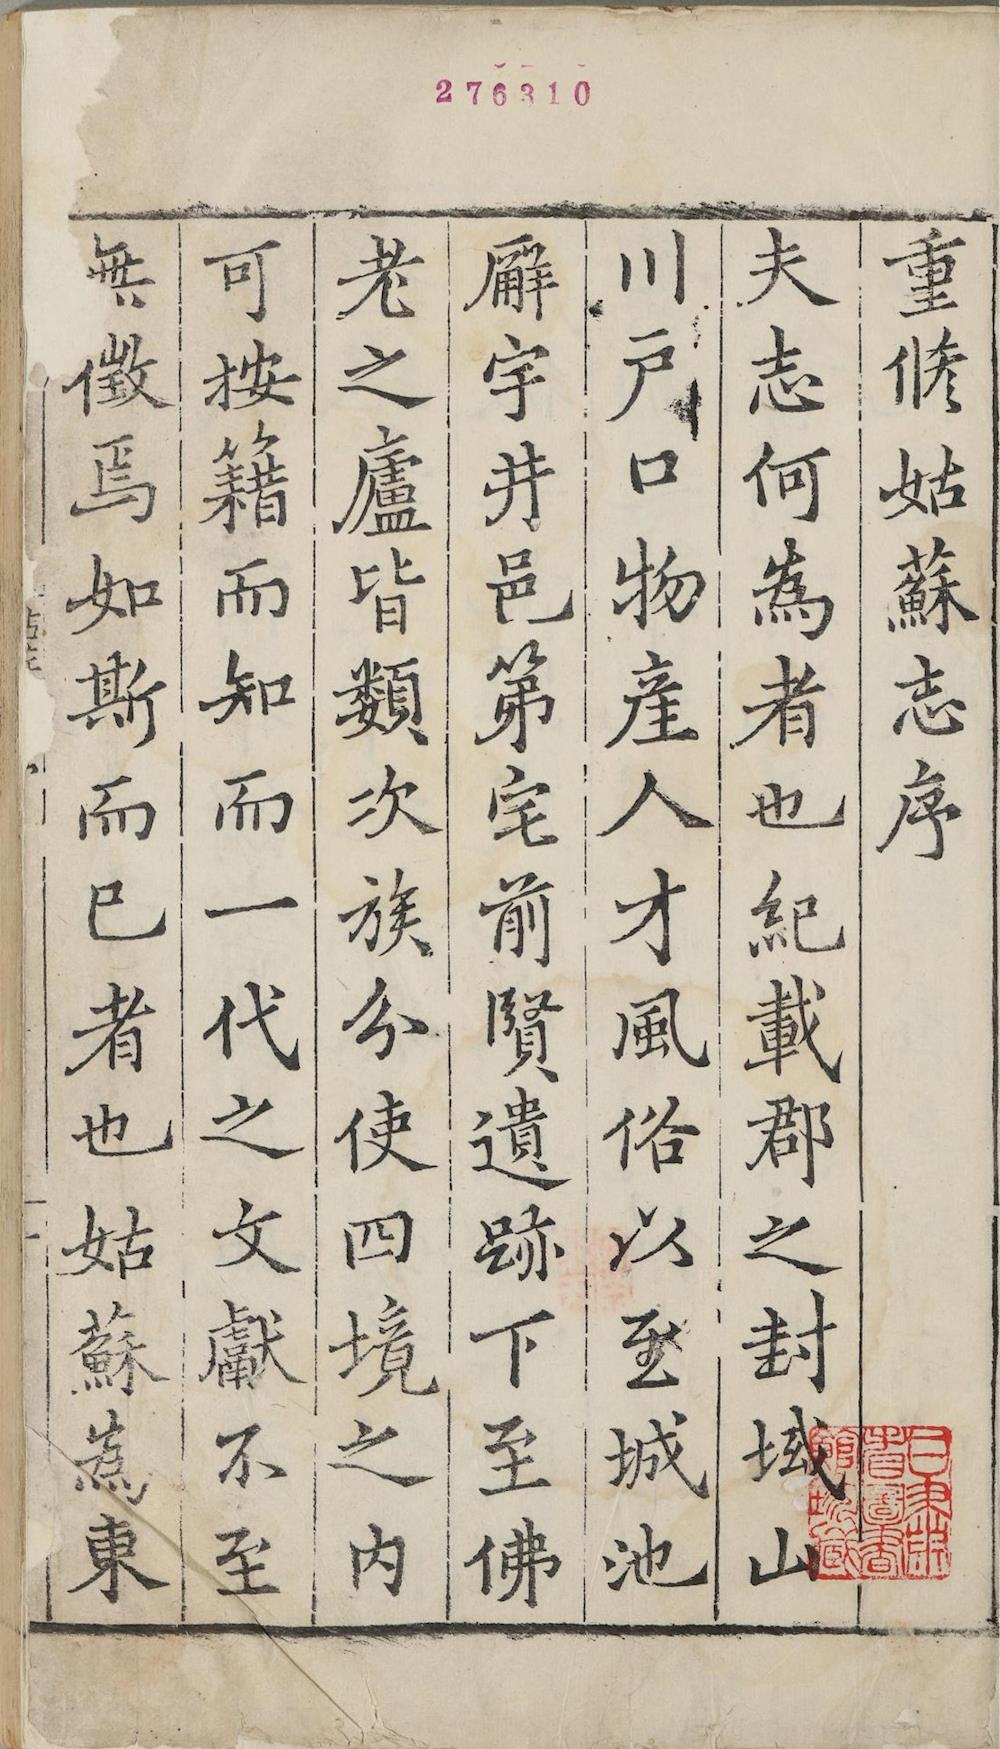 276310
重脩姑蘇志序
夫志何為者也紀載郡之封域山
川戶口物產人才風俗以至城池
廨宇井邑第宅前賢遺跡下至佛
老之廬皆類次族分使四境之内
可按籍而知而一代之文獻不至
無徵焉如斯而已者也姑蘇為東